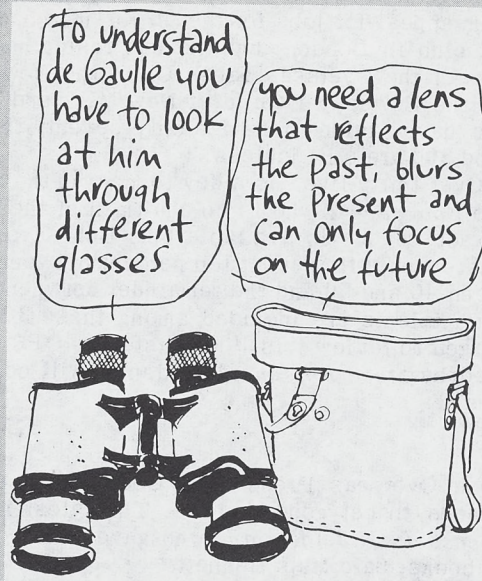 to understand
de Gaulle you
have to look
at him
through
different
glasses
you need a lens
that reflects
the past, blurs
the present and
can only focus
on the future